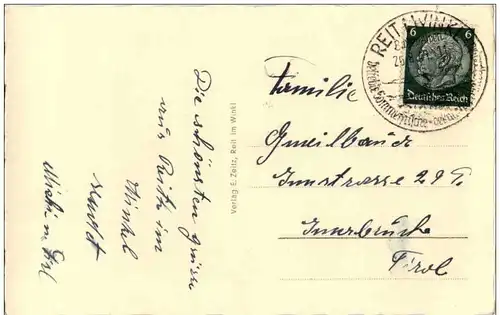 Die schönsten Grüsse
aus Reit im
Winkel
sendet
Verlag E. Zeitz, Reit im Winkl
REIT I. WINKL
6 6
Deutsches Reich
Familie
Gmeilbauer
Innstrasse 29
Innsbruck
Tirol